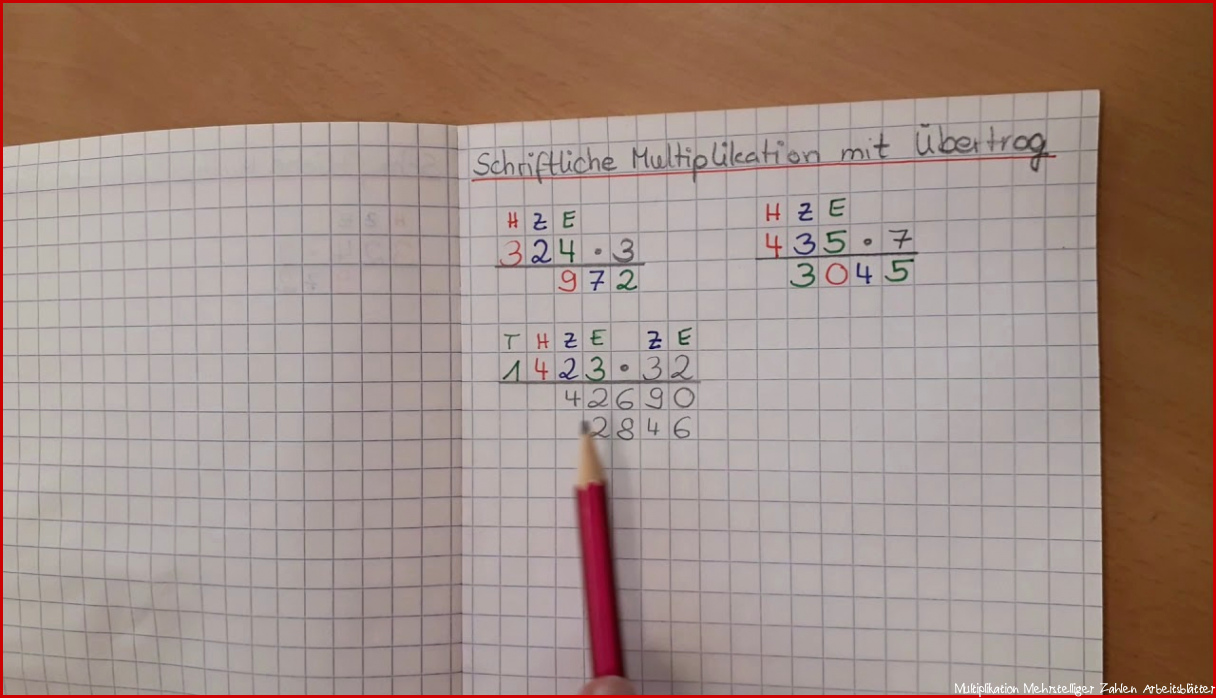 Schriftliche Multiplikation mit Übertrag
H Z E
324 · 3
972
H Z E
435 · 7
3045
T H Z E Z E
1423 · 32
42690
2846
Multiplikation Mehrstelliger Zahlen Arbeitsblätter